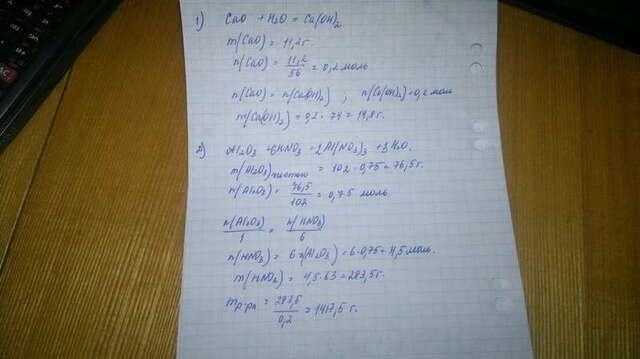 1) CaO + H2O = Ca(OH)2
m(CaO) = 11,2 г.
n(CaO) = 11,2/56 = 0,2 моль
n(CaO) = n(Ca(OH)2) ; n(Ca(OH)2) = 0,2 моль
m(Ca(OH)2) = 0,2 · 74 = 14,8 г.
2) Al2O3 + 6HNO3 = 2Al(NO3)3 + 3H2O.
m(Al2O3)чистого = 102 · 0,75 = 76,5 г.
n(Al2O3) = 76,5/102 = 0,75 моль
n(Al2O3)/1 = n(HNO3)/6
n(HNO3) = 6n(Al2O3) = 6 · 0,75 = 4,5 моль.
m(HNO3) = 4,5 · 63 = 283,5 г.
mр-ра = 283,5/0,2 = 1417,5 г.